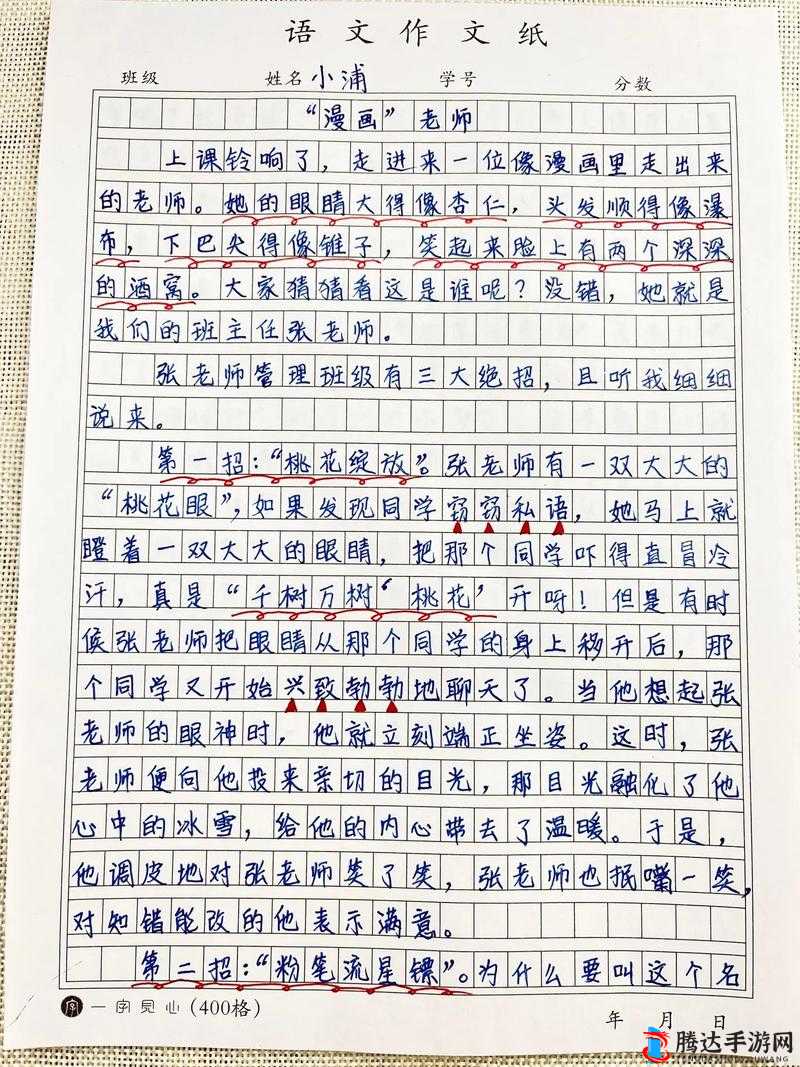 语文作文纸
班级 姓名 小浦 学号 分数
“漫画”老师
上课铃响了，走进来一位像漫画里走出来
的老师。她的眼睛大得像杏仁，头发顺得像瀑
布，下巴尖得像锥子，笑起来脸上有两个深深
的酒窝。大家猜猜看这是谁呢？没错，她就是
我们的班主任张老师。
张老师管理班级有三大绝招，且听我细细
说来。
第一招：“桃花绽放”。张老师有一双大大的
“桃花眼”，如果发现同学窃窃私语，她马上就
瞪着一双大大的眼睛，把那个同学吓得直冒冷
汗，真是“千树万树‘桃花’开呀！但是有时
候张老师把眼睛从那个同学的身上移开后，那
个同学又开始兴致勃勃地聊天了。当他想起张
老师的眼神时，他就立刻端正坐姿。这时，张
老师便向他投来亲切的目光，那目光融化了他
心中的冰雪，给他的内心带去了温暖。于是，
他调皮地对张老师笑了笑，张老师也抿嘴一笑，
对知错能改的他表示满意。
第二招：“粉笔流星镖”。为什么要叫这个名
字 一字见心（400格） 年 月 日
腾达手游网